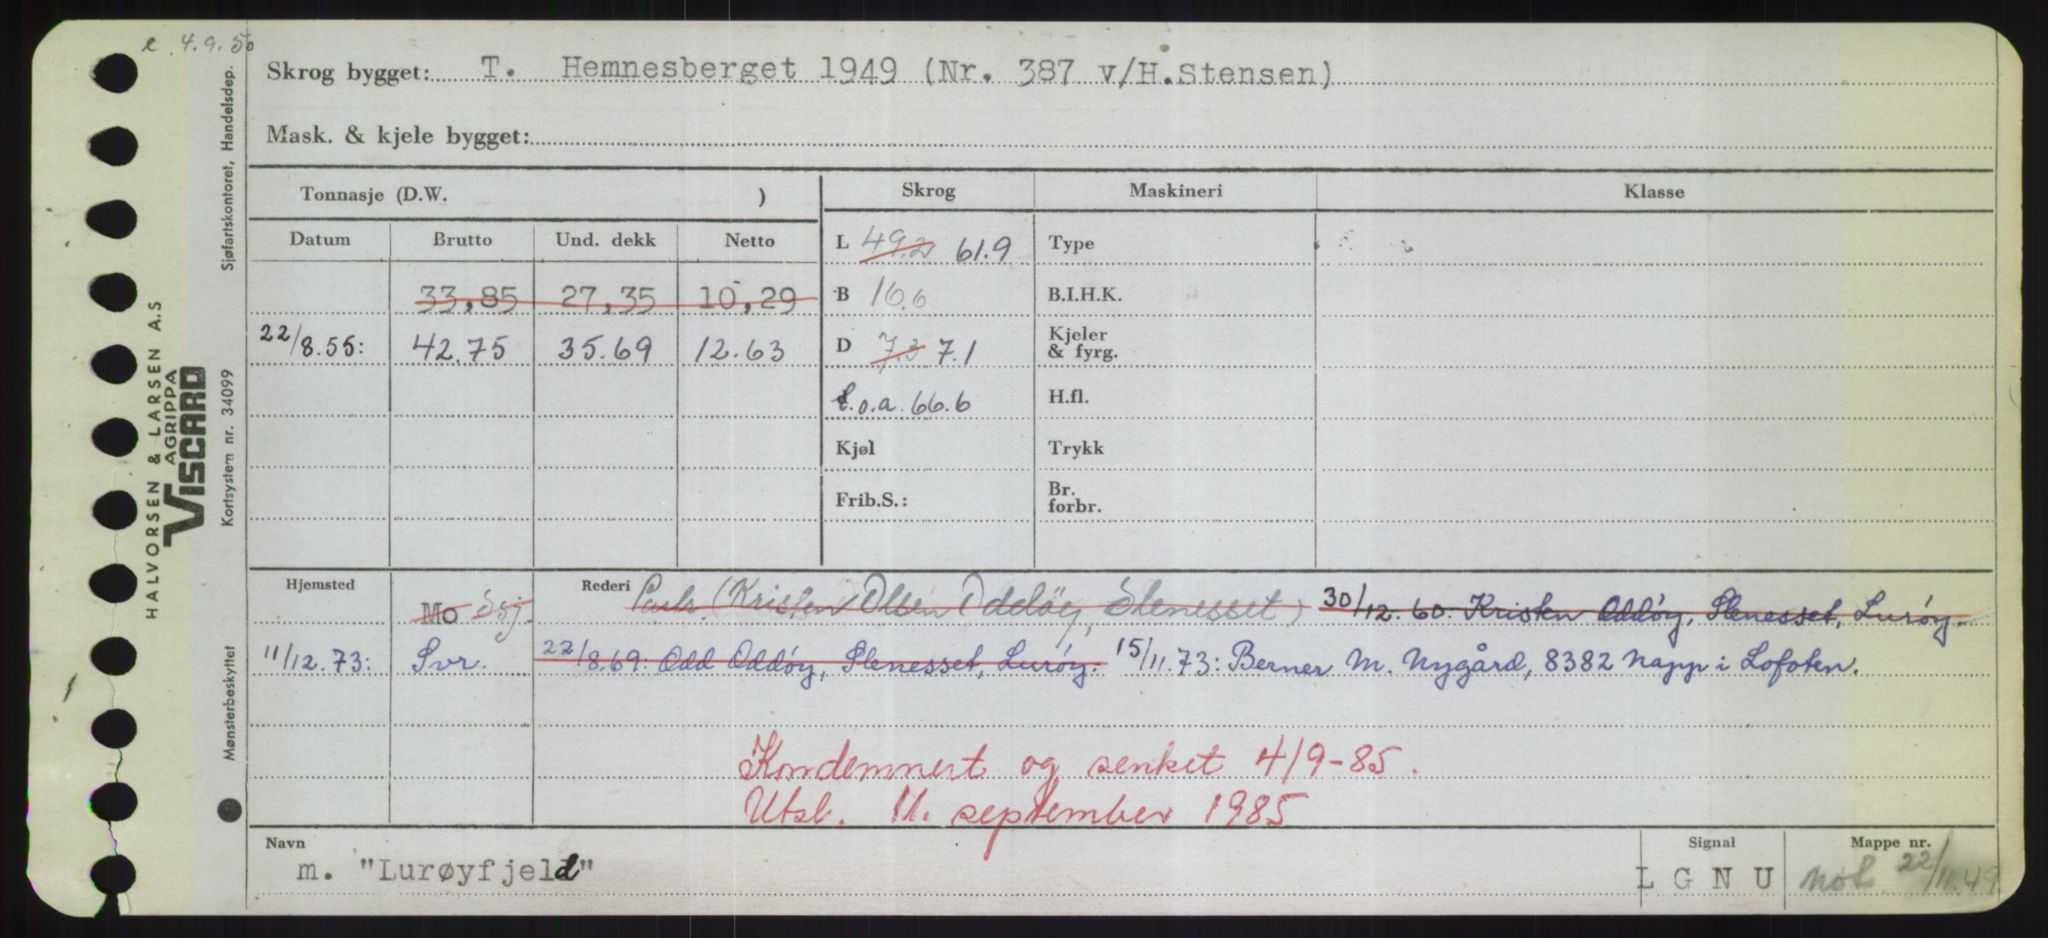 e 4.9.50
Skrog bygget: T. Hemnesberget 1949 (Nr. 387 v/H.Stensen)
Mask. & kjele bygget:
Tonnasje (D.W. )
Skrog Maskineri Klasse
Datum Brutto Und. dekk Netto
33,85 27,35 10,29
22/8.55: 42.75 35.69 12.63
L 49.2 61.9
B 16.6
D 7.3 7.1
L.o.a. 66.6
Kjøl
Frib.S.:
Type
B.I.H.K.
Kjeler
& fyrg.
H.fl.
Trykk
Br.
forbr.
Hjemsted Mo Ssj. Rederi (Kristen Olsen Oddöy, Stenesset) 30/12.60. Kristen Oddöy, Stenesset, Lurøy.
11/12.73: Svr. 22/8.69: Odd Oddöy, Stenesset, Lurøy. 15/11.73: Berner M. Nygård, 8382 Napp i Lofoten.
Kondemnert og senket 4/9-85.
Utsl. 11. september 1985
Navn Signal Mappe nr.
m. "Lurøyfjeld" L G N U 22/11.49
HALVORSEN & LARSEN A.S
AGRIPPA
VISCARD
Sjøfartskontoret, Handelsdep.
Kortsystem nr. 34099
Mønsterbeskyttet